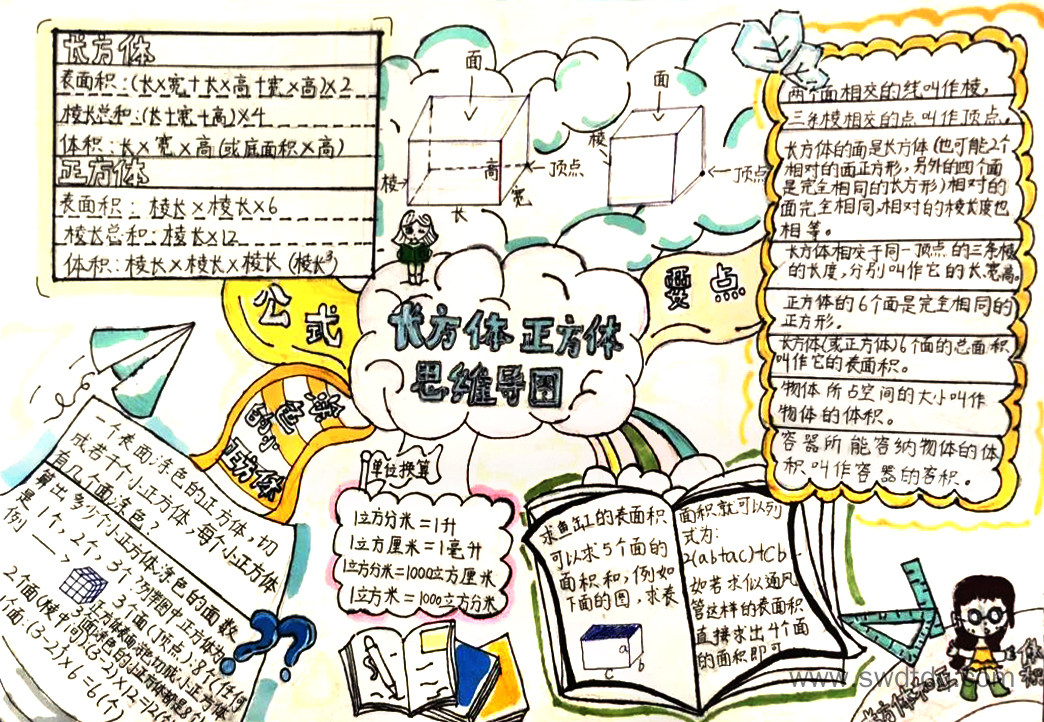 长方体
表面积：(长×宽+长×高+宽×高)×2
棱长总和：(长+宽+高)×4
体积：长×宽×高(或底面积×高)
正方体
表面积：棱长×棱长×6
棱长总和：棱长×12
体积：棱长×棱长×棱长(棱长³)
面
棱
高
顶点
宽
长
面
棱
顶点
公式
要点
长方体正方体
思维导图
两个面相交的线叫作棱，
三条棱相交的点叫作顶点。
长方体的面是长方体(也可能2个
相对的面正方形，另外的四个面
是完全相同的长方形)相对的
面完全相同，相对的棱长度也
相等。
长方体相交于同一顶点的三条棱
的长度，分别叫作它的长宽高。
正方体的6个面是完全相同的
正方形。
长方体(或正方体)6个面的总面积
叫作它的表面积。
物体所占空间的大小叫作
物体的体积。
容器所能容纳物体的体
积叫作容器的容积。
涂
色的小
正方体
一个表面涂色的正方体，切
成若干个小正方体，每个小正方体
有几个面涂色？
算出多少个小正方体涂色的面数
是1个，2个，3个
例
3个面(顶点)：8个
2个面(棱中间)：(3-2)×12=12(个)
1个面：(3-2)×6=6(个)
单位换算
1立方分米=1升
1立方厘米=1毫升
1立方分米=1000立方厘米
1立方米=1000立方分米
求鱼缸的表面积
可以求5个面的
面积和，例如
下面的图，求表
a
b
c
面积就可以列
式为：
2(ab+ac)+cb
如若求似通风
管这样的表面积
直接求出4个面
的面积即可
www.swdtdr.com